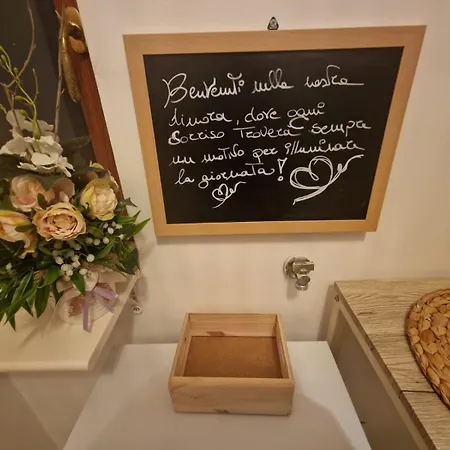 Benvenuti nella nostra
dimora, dove ogni
Sorriso Troverà sempre
un motivo per illuminare
la giornata!